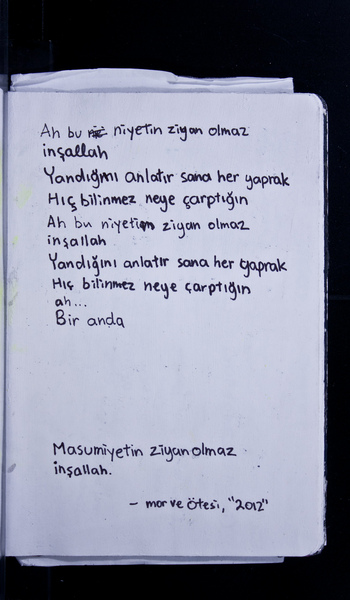 Ah bu niyetin ziyan olmaz
inşallah
Yandığını anlatır sana her yaprak
Hiç bilinmez neye çarptığın
Ah bu niyetin ziyan olmaz
inşallah
Yandığını anlatır sana her yaprak
Hiç bilinmez neye çarptığın
ah...
Bir anda
Masumiyetin ziyan olmaz
inşallah.
- mor ve Ötesi, "2012"